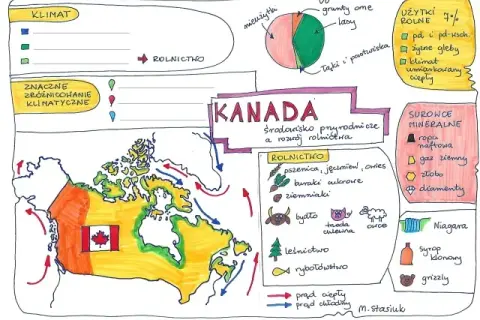 KLIMAT
ROLNICTWO
ZNACZNE
ZRÓŻNICOWANIE
KLIMATYCZNE
nieużytki
grunty orne
lasy
łąki i pastwiska
UŻYTKI
ROLNE 7%
pd. i pd-wsch.
żyzne gleby
klimat
umiarkowany
ciepły
KANADA
środowisko przyrodnicze
a rozwój rolnictwa
SUROWCE
MINERALNE
ropa
naftowa
gaz ziemny
złoto
diamenty
ROLNICTWO
pszenica, jęczmień, owies
buraki cukrowe
ziemniaki
bydło
trzoda
chlewna
owce
leśnictwo
rybołówstwo
Niagara
syrop
klonowy
grizzly
prąd ciepły
prąd chłodny
M. Stasiuk